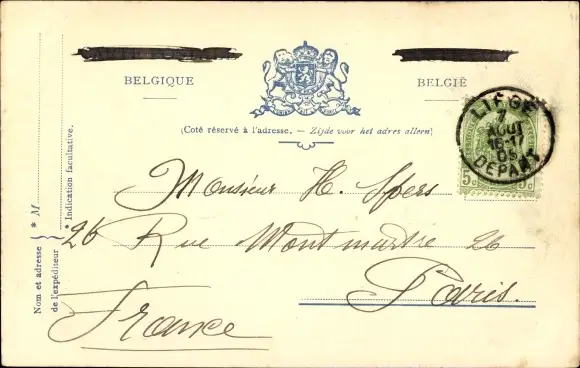 BELGIQUE
BELGIË
(Coté réservé à l'adresse. — Zijde voor het adres alleen)
LIÈGE
7
AOUT
16-17
05
DÉPART
5c 5c
Monsieur H. Spers
26 Rue Montmartre 26
Paris.
France
Nom et adresse de l'expéditeur
* M
* Indication facultative.